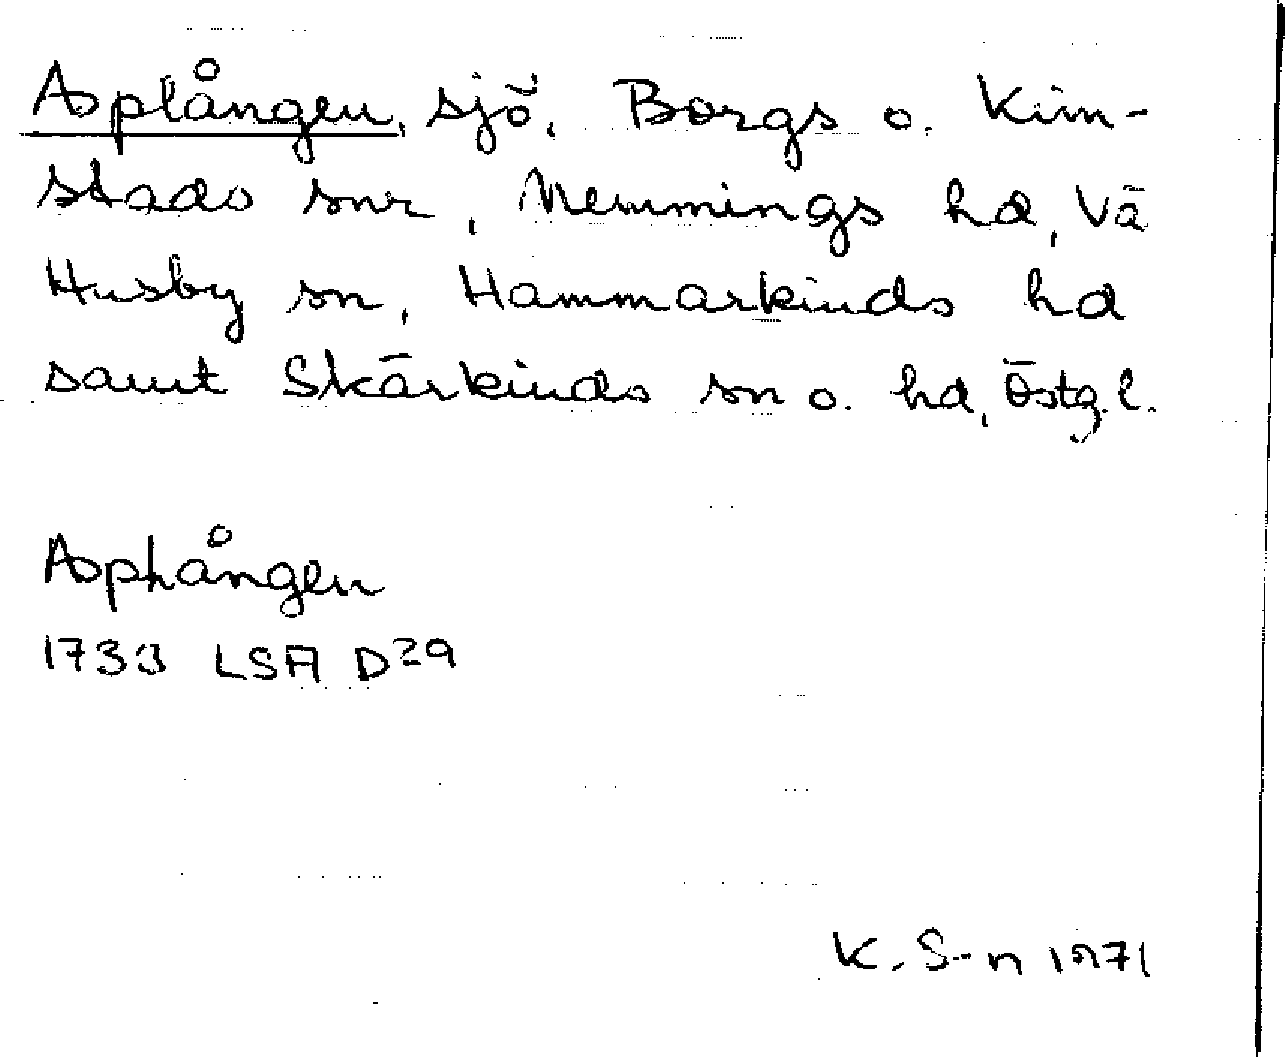 Asplången, sjö, Borgs o. Kim-
stads snr, Memmings hd, Vä
Husby sn, Hammarkinds hd
samt Skärkinds sn o. hd, Östg.l.
Asphången
1733 LSA D29
K. S-n 1971